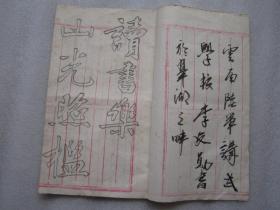 雲南陸軍講武
學校李文
於翠湖之畔
讀書樂
山光照檻